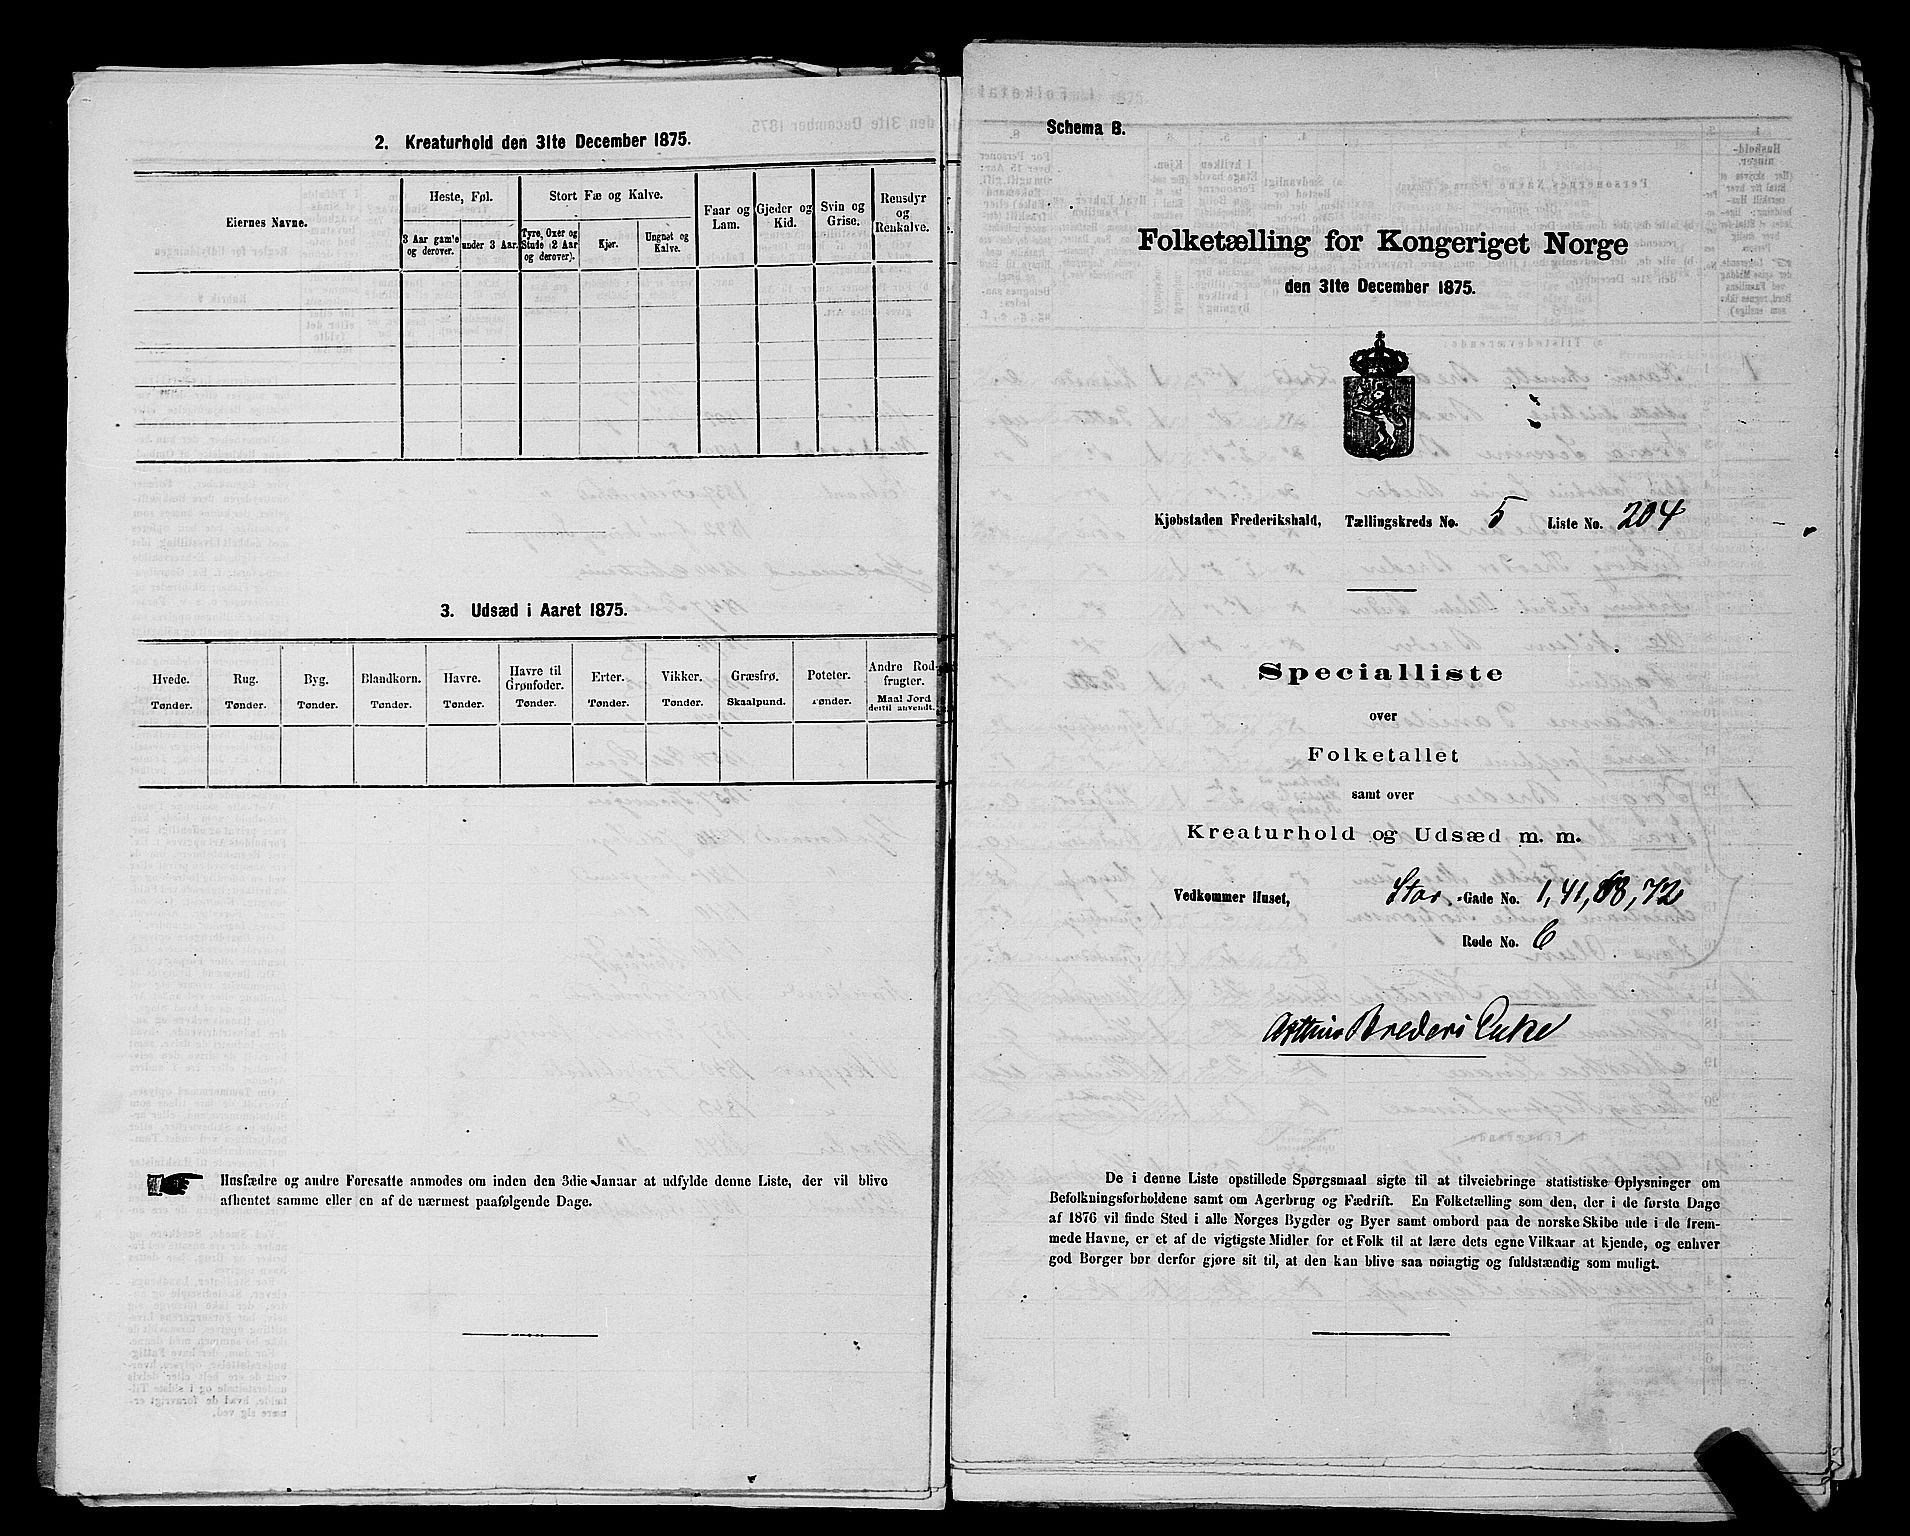 2. Kreaturhold den 31te December 1875.
Eiernes Navne.
Heste, Føl.
3 Aar gamle og derover.
under 3 Aar.
Stort Fæ og Kalve.
Tyre, Oxer og Stude (2 Aar og derover).
Kjør.
Ungnøt og Kalve.
Faar og Lam.
Gjeder og Kid.
Svin og Grise.
Rensdyr og Renkalve.
3. Udsæd i Aaret 1875.
Hvede. Tønder.
Rug. Tønder.
Byg. Tønder.
Blandkorn. Tønder.
Havre. Tønder.
Havre til Grønfoder. Tønder.
Erter. Tønder.
Vikker. Tønder.
Græsfrø. Skaalpund.
Poteter. Tønder.
Andre Rodfrugter. Maal Jord dertil anvendt.
Husfædre og andre Foresatte anmodes om inden den 3die Januar at udfylde denne Liste, der vil blive
afhentet samme eller en af de nærmest paafølgende Dage.
Schema B.
Folketælling for Kongeriget Norge
den 31te December 1875.
Kjøbstaden Frederikshald, Tællingskreds No. 5 Liste No. 204
Specialliste
over
Folketallet
samt over
Kreaturhold og Udsæd m. m.
Vedkommer Huset, Stor-Gade No. 1, 41, 68, 72
Rode No. C
Breders Enke
De i denne Liste opstillede Spørgsmaal sigte til at tilveiebringe statistiske Oplysninger om
Befolkningsforholdene samt om Agerbrug og Fædrift. En Folketælling som den, der i de første Dage
af 1876 vil finde Sted i alle Norges Bygder og Byer samt ombord paa de norske Skibe ude i de fremmede
Havne, er et af de vigtigste Midler for et Folk til at lære dets egne Vilkaar at kjende, og enhver
god Borger bør derfor gjøre sit til, at den kan blive saa nøiagtig og fuldstændig som muligt.